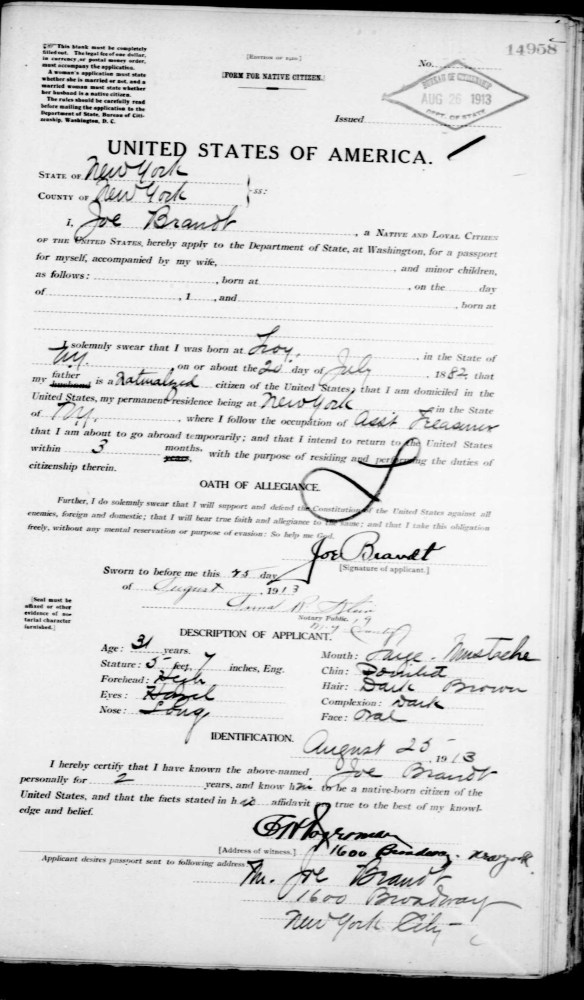 This blank must be completely
filled out. The legal fee of one dollar,
in currency or postal money order,
must accompany the application.
A woman's application must state
whether she is married or not, and a
married woman must state whether
her husband is a native citizen.
The rules should be carefully read
before mailing the application to the
Department of State, Bureau of Citi-
zenship, Washington, D. C.
[FORM FOR NATIVE CITIZEN.]
No. 14958
BUREAU OF CITIZENSHIP
AUG 26 1913
DEPT. OF STATE
Issued
UNITED STATES OF AMERICA.
STATE OF New York
COUNTY OF New York } ss:
I, Joe Brandt, a NATIVE AND LOYAL CITIZEN
OF THE UNITED STATES, hereby apply to the Department of State, at Washington, for a passport
for myself, accompanied by my wife, , and minor children,
as follows: , born at , on the day
of , 1 , and , born at
I solemnly swear that I was born at Troy, in the State of
N.Y. , on or about the 20 day of July , 1882, that
my father husband is a Naturalized citizen of the United States; that I am domiciled in the
United States, my permanent residence being at New York in the State
of N.Y. , where I follow the occupation of Ass't Treasurer
that I am about to go abroad temporarily; and that I intend to return to the United States
within 3 months, years, with the purpose of residing and performing the duties of
citizenship therein.
OATH OF ALLEGIANCE.
Further, I do solemnly swear that I will support and defend the Constitution of the United States against all
enemies, foreign and domestic; that I will bear true faith and allegiance to the same; and that I take this obligation
freely, without any mental reservation or purpose of evasion: So help me God.
Joe Brandt
[Signature of applicant.]
Sworn to before me this 25 day
of August , 1913
[Seal must be
affixed or other
evidence of no-
tarial character
furnished.]
Notary Public.
DESCRIPTION OF APPLICANT.
Age: 31 years. Mouth: Large - Mustache
Stature: 5 feet, 7 inches, Eng. Chin: Pointed
Forehead: High Hair: Dark Brown
Eyes: Hazel Complexion: Dark
Nose: Long Face: Oval
IDENTIFICATION.
August 25 , 1913
I hereby certify that I have known the above-named Joe Brandt
personally for 2 years, and know him to be a native-born citizen of the
United States, and that the facts stated in his affidavit are true to the best of my knowl-
edge and belief.
1600 Broadway - New York.
[Address of witness.]
Applicant desires passport sent to following address
Mr. Joe Brandt
1600 Broadway
New York City -